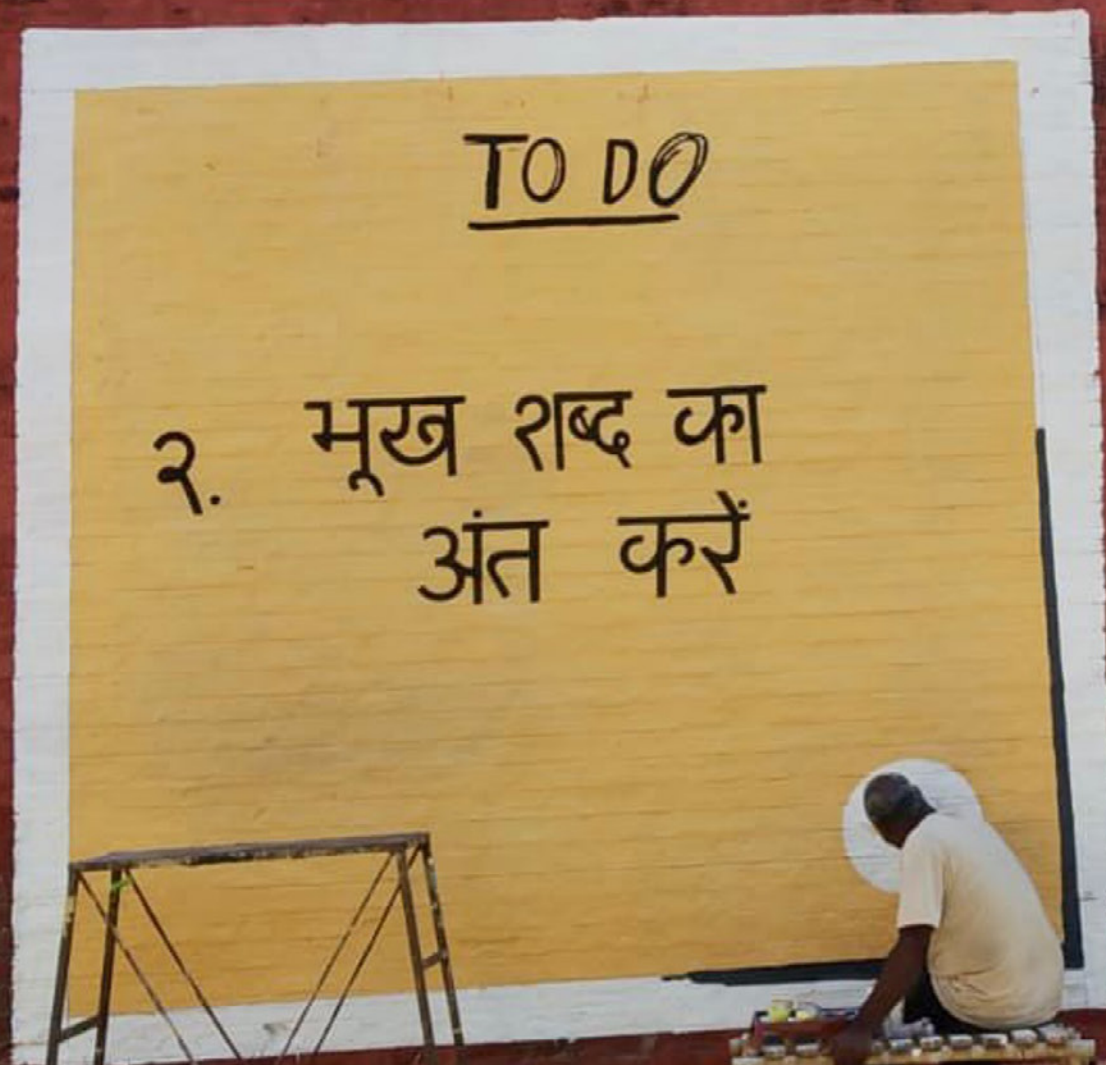 TO DO
२. भूख शब्द का
अंत करें